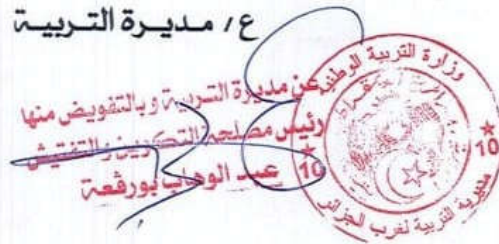 ع/ مديرة التربية
عن مديرة التربية وبالتفويض منها
رئيس مصلحة التكوين والتفتيش
عبد الوهاب بورقعة
وزارة التربية الوطنية
مديرية التربية لغرب الجزائر
10
10